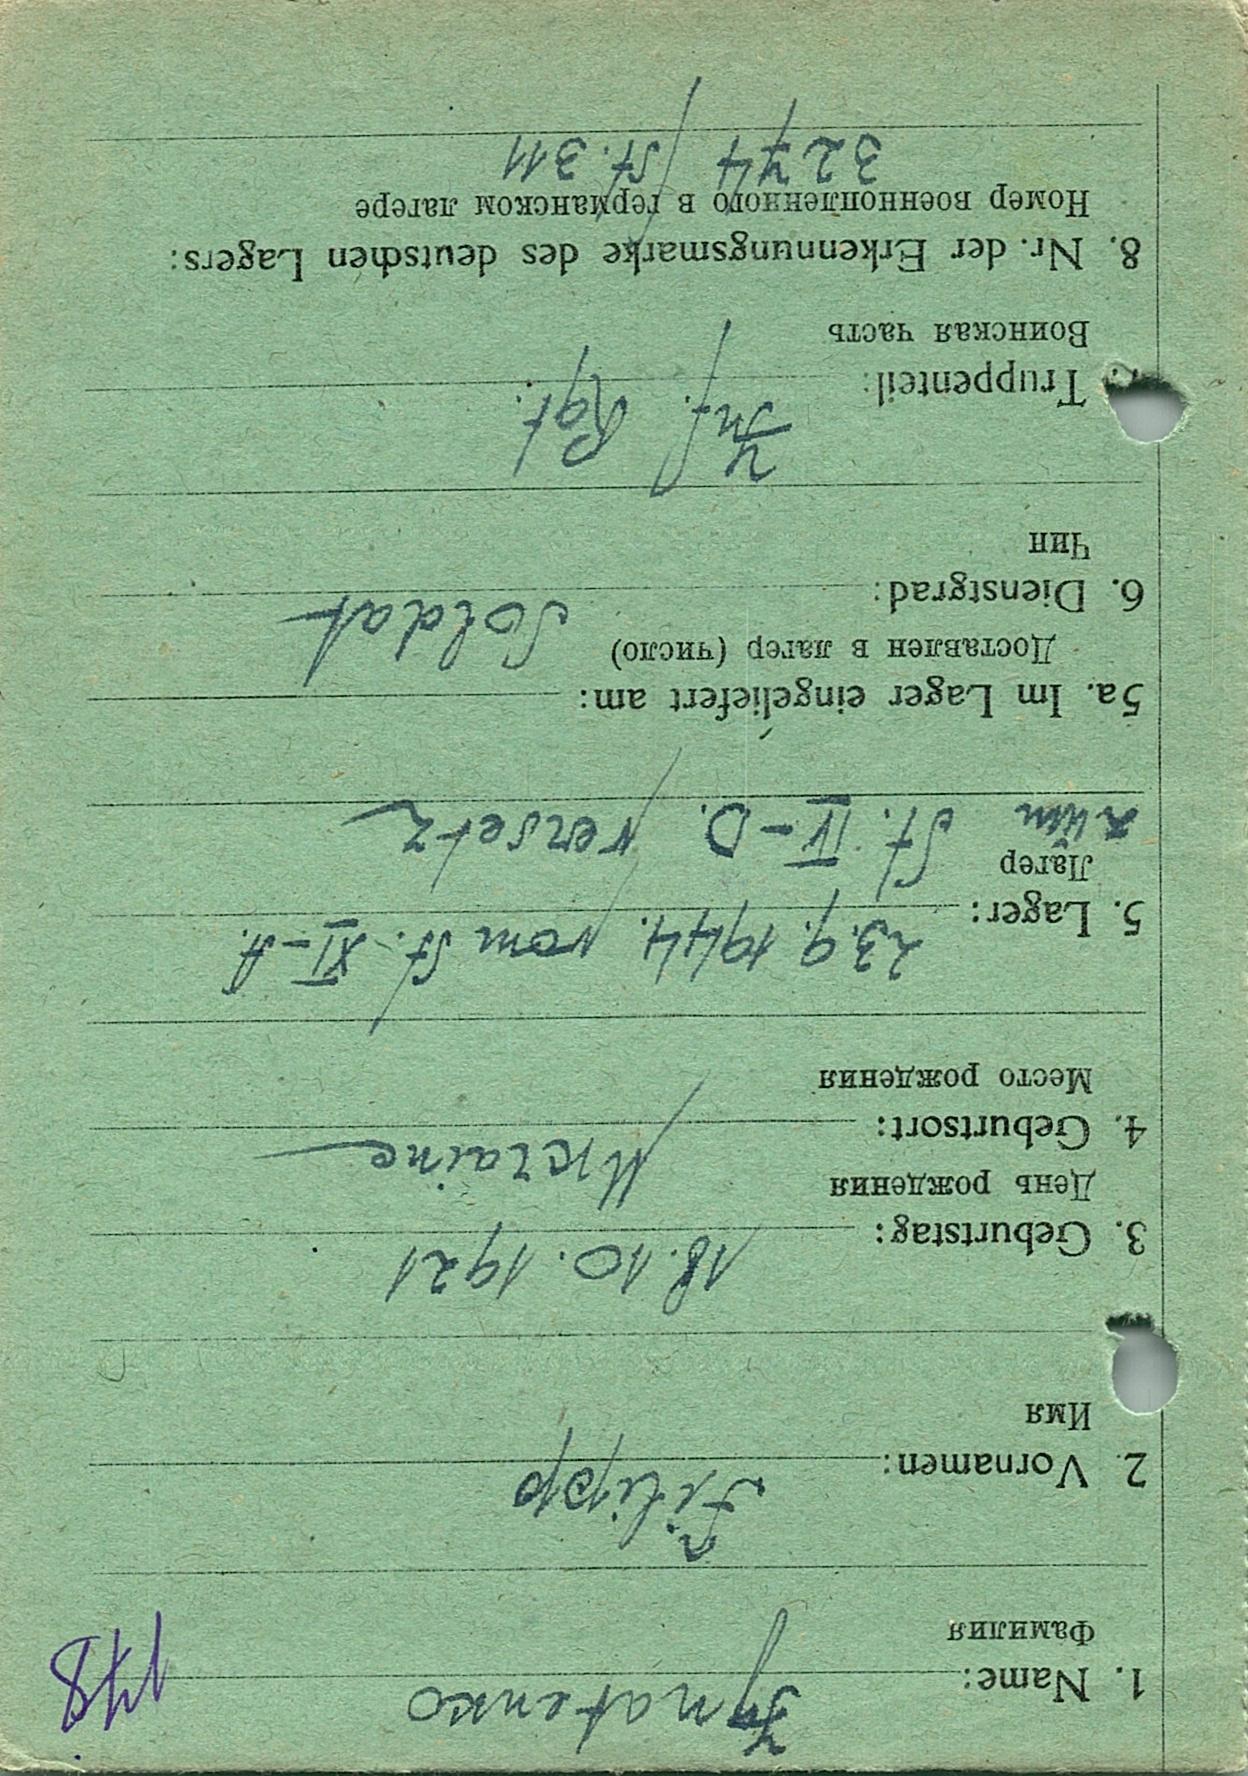 148
1. Name: Ignatenko
Фамилия
2. Vornamen: Filipp
Имя
3. Geburtstag: 18.10.1921
День рождения
4. Geburtsort: Ukraine
Место рождения
5. Lager: 23.9.1944. vom St. XI-A.
Лагер
zum St. IV-D. versetz
5a. Im Lager eingeliefert am:
Доставлен в лагер (число)
6. Dienstgrad: Soldat
Чин
Inf. Rgt.
7. Truppenteil:
Воинская часть
8. Nr. der Erkennungsmarke des deutschen Lagers:
Номер военнопленного в германском лагере
3274 / St. 311